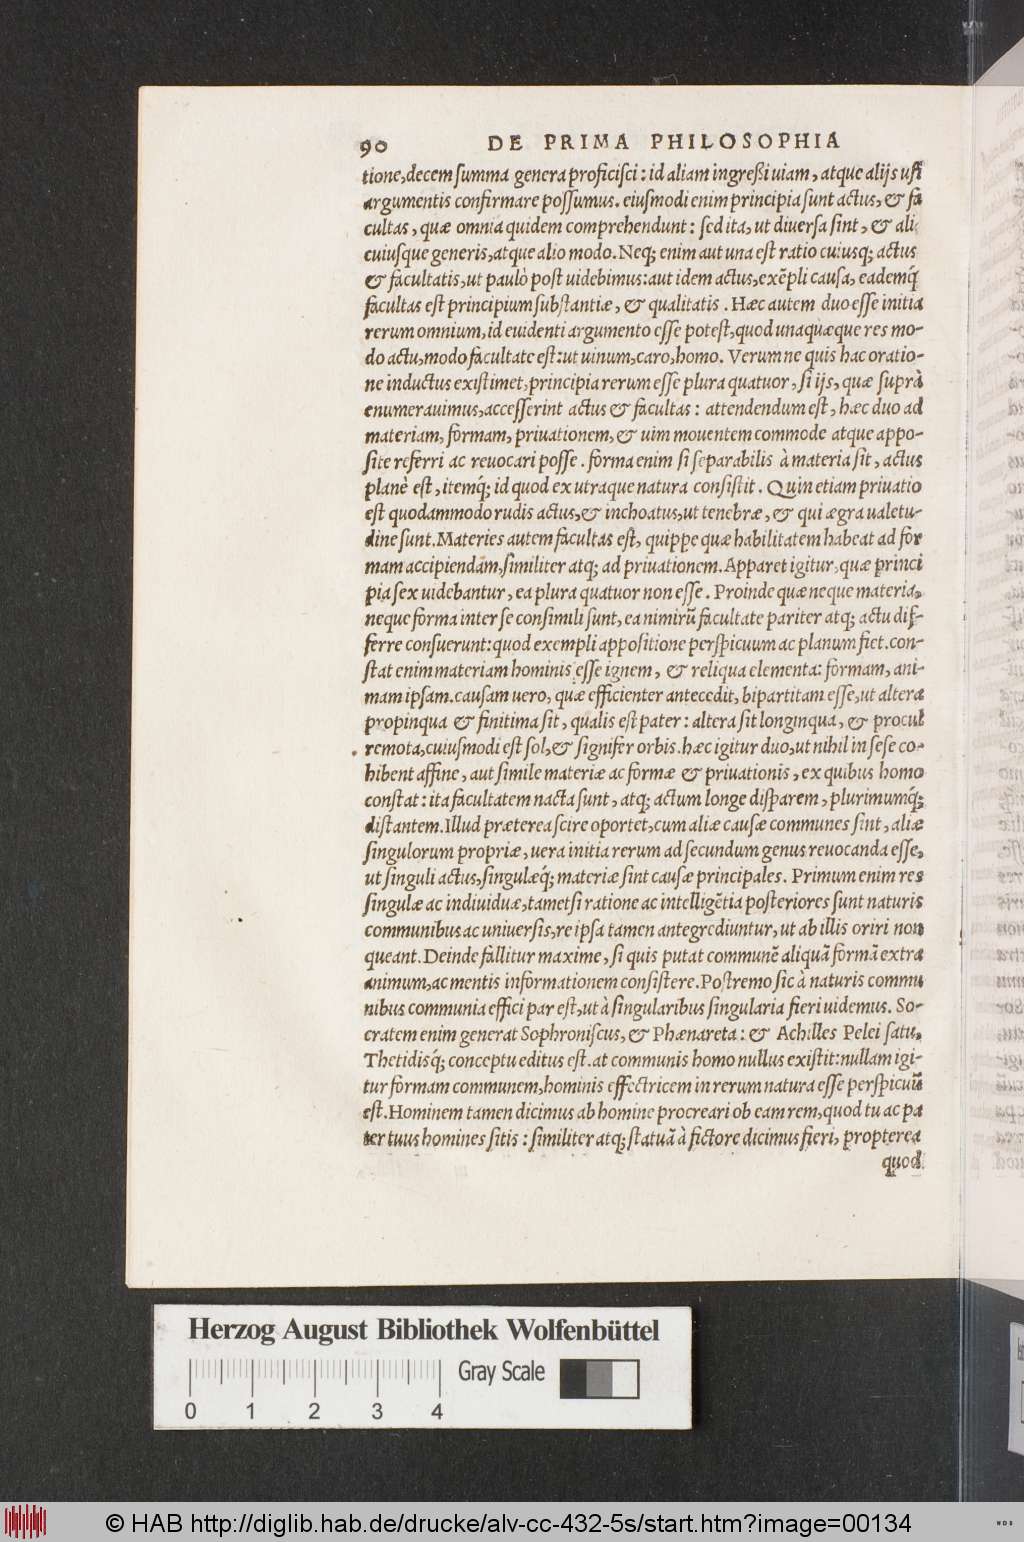 90 DE PRIMA PHILOSOPHIA
tione, decem summa genera proficisci: id aliam ingreßi uiam, atque alijs usi
argumentis confirmare possumus. eiusmodi enim principia sunt actus, & fa
cultas, quæ omnia quidem comprehendunt: sed ita, ut diuersa sint, & ali
cuiusque generis, atque alio modo. Neq; enim aut una est ratio cuiusq; actus
& facultatis, ut paulò post uidebimus: aut idem actus, exẽpli causa, eademq́
facultas est principium substantiæ, & qualitatis. Hæc autem duo esse initia
rerum omnium, id euidenti argumento esse potest, quod unaquæque res mo-
do actu, modo facultate est: ut uinum, caro, homo. Verum ne quis hac oratio-
ne inductus existimet, principia rerum esse plura quatuor, si ijs, quæ suprà
enumerauimus, accesserint actus & facultas: attendendum est, hæc duo ad
materiam, formam, priuationem, & uim mouentem commode atque appo-
site referri ac reuocari posse. forma enim si separabilis à materia sit, actus
planè est, itemq́; id quod ex utraque natura consistit. Quin etiam priuatio
est quodammodo rudis actus, & inchoatus, ut tenebræ, & qui ægra ualetu-
dine sunt. Materies autem facultas est, quippe quæ habilitatem habeat ad for
mam accipiendam, similiter atq; ad priuationem. Apparet igitur, quæ princi
pia sex uidebantur, ea plura quatuor non esse. Proinde quæ neque materia,
neque forma inter se consimili sunt, ea nimirũ facultate pariter atq; actu dif-
ferre consuerunt: quod exempli appositione perspicuum ac planum fiet. con-
stat enim materiam hominis esse ignem, & reliqua elementa: formam, ani-
mam ipsam. causam uero, quæ efficienter antecedit, bipartitam esse, ut altera
propinqua & finitima sit, qualis est pater: altera sit longinqua, & procul
remota, cuiusmodi est sol, & signifer orbis. hæc igitur duo, ut nihil in sese co-
hibent affine, aut simile materiæ ac formæ & priuationis, ex quibus homo
constat: ita facultatem nacta sunt, atq; actum longe disparem, plurimumq́;
distantem. Illud præterea scire oportet, cum aliæ causæ communes sint, aliæ
singulorum propriæ, uera initia rerum ad secundum genus reuocanda esse,
ut singuli actus, singulæq́; materiæ sint causæ principales. Primum enim res
singulæ ac indiuiduæ, tametsi ratione ac intelligẽtia posteriores sunt naturis
communibus ac uniuersis, re ipsa tamen antegrediuntur, ut ab illis oriri non
queant. Deinde fallitur maxime, si quis putat communẽ aliquã formã extra
animum, ac mentis informationem consistere. Postremo sic à naturis commu
nibus communia effici par est, ut à singularibus singularia fieri uidemus. So-
cratem enim generat Sophroniscus, & Phænareta: & Achilles Pelei satu,
Thetidisq́; conceptu editus est. at communis homo nullus existit: nullam igi-
tur formam communem, hominis effectricem in rerum natura esse perspicuũ
est. Hominem tamen dicimus ab homine procreari ob eam rem, quod tu ac pa
ter tuus homines sitis: similiter atq; statuã à fictore dicimus fieri, propterea
quod
Herzog August Bibliothek Wolfenbüttel
Gray Scale
0 1 2 3 4
© HAB http://diglib.hab.de/drucke/alv-cc-432-5s/start.htm?image=00134